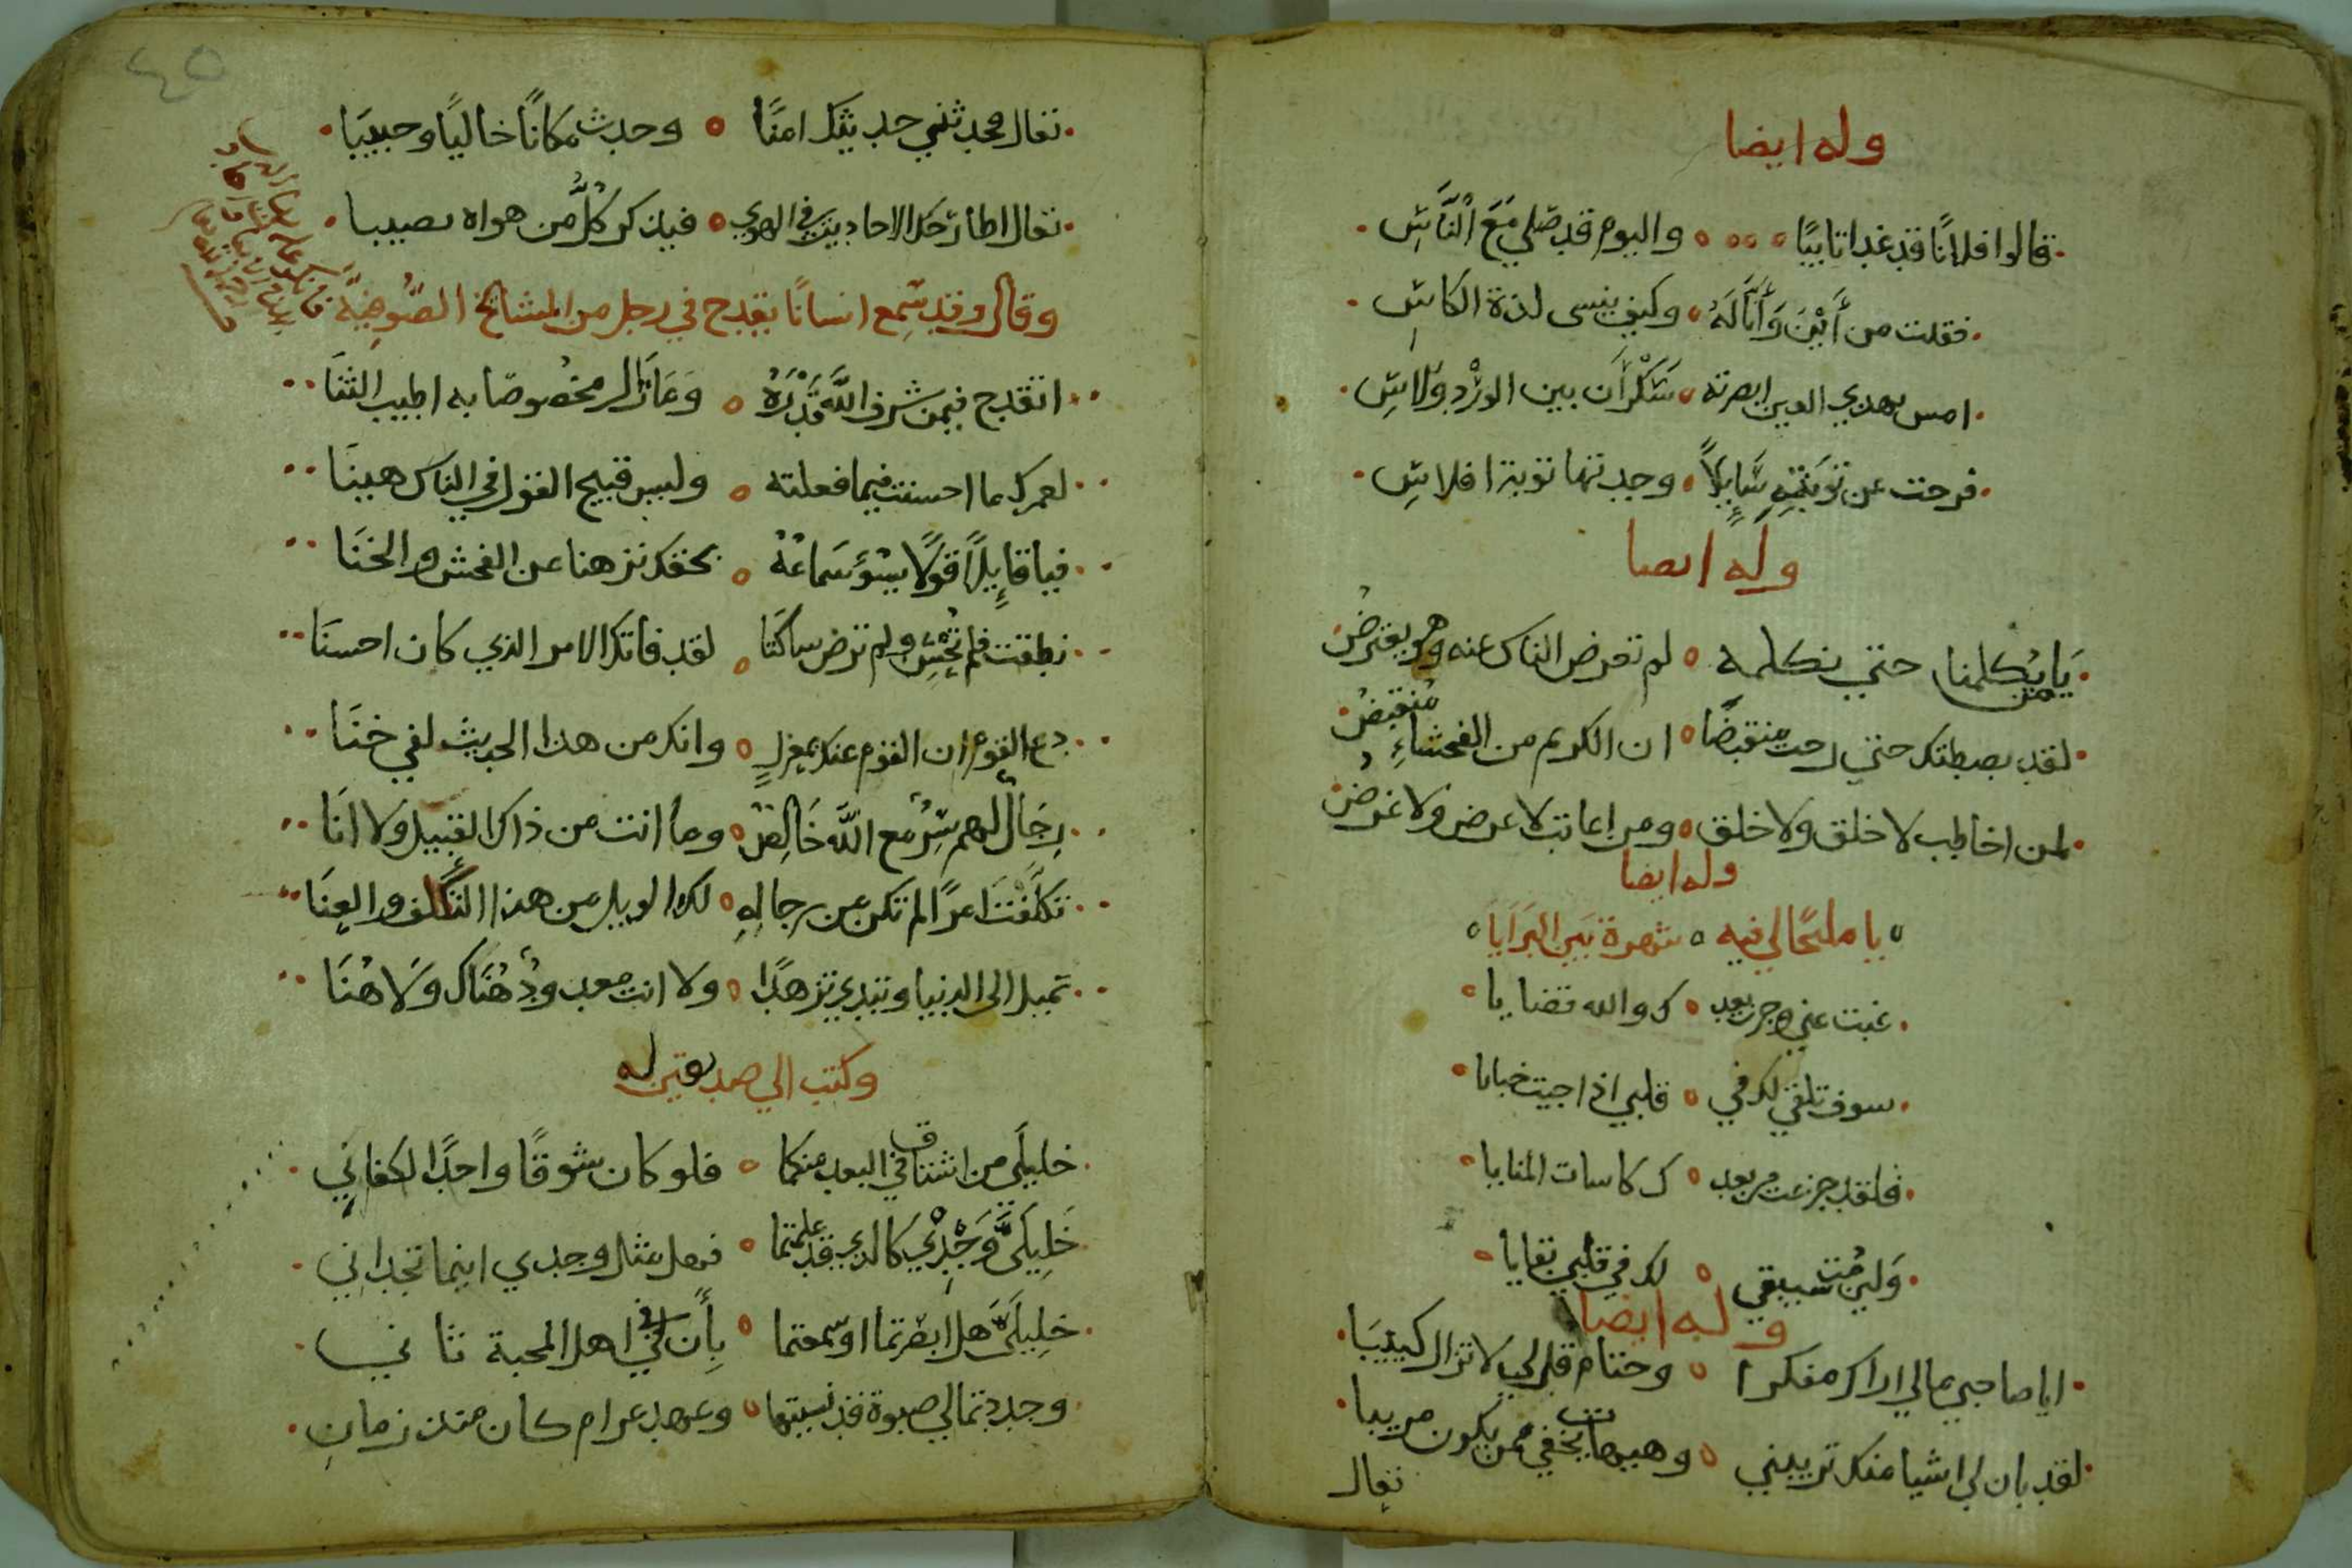 وله ايضا
قالوا فلانًا قد غدا تايبًا واليوم قد صلي مَعَ النَّاسِ
فقلت من أَيْنَ وَأَنَّا لَهُ وكيف ينسى لذة الكاسِ
امس بهذي العين ابصرته سَكْرَان بين الورْد وَلاسِ
فرحت عن تَوبَتِهِ سَايِلاً وجدتها توبة افلاسِ
وله ايضا
يَا يكلمنا حتي نكلمه لم تعرض الناس عنه وهو يعترضُ
لقد بصطتك حتي رحت منقبضًا ان الكريم من الفحشاءِ منقبضُ
لمن اخاطب لا خلق ولا خلق ومن اعاتب لا عرض ولا غرضُ
وله ايضا
يا مليحًا لي فيه شهرة بَين البَرَايَا
غبت عني وجرت بعد ك والله قضايا
سوف تلقي لك في قلبي اذا جيت خبايا
فلقد جرعت من بعد ك كاسات المنايا
وَلين مُت سيبقي لك في قلبي بقايا
وله ايضا
ايا صاحبي مالي اراك مفكرا وحتام قل لي لا تزال كييبَا
لقد بان لي اشيا منك تريبني وهيهات يخفي من يكون مريبا
تعال
٤٥
تعال فحدثني حديثك امنًا وجدت مكانًا خاليًا وحبيبَا
تعال اطارحك الاحاديث في الهوي فيذكر كُلٌّ من هواه نصيبا
وقال وقد سَمِع انسانًا يقدح في رجل من المشايخ الصُّوفِيَّة
اتقدح فيمن شرف اللَّه قَدْرَهُ وَمَا زال مخصوصًا به اطيب الثنَا
لعمرك ما احسنت فيما فعلته وليس قبيح القول في الناس هينَا
فيا قايِلاً قولاً يسؤ سَمَاعَهُ بحقك نزهنا عن الفحش والخنَا
نطقت فلم تُحْسِن ولم ترض ساكتا لقد فاتك الامر الذي كان احسنَا
دع القوم ان القوم عنك بمعزلٍ وانك من هذا الحديث لفي خنَا
رِجَالٌ لهم سِرٌّ مع اللَّه خَالِصٌ وما انت من ذاك القبيل ولا انَا
تكَلَّفْتَ امرًا لم تكن من رجالِهِ لك الويل من هذا التكلف والعنَا
تميل الى الدنيا وتبدي تزهدًا ولا انت معدودٌ هُنَاك وَلَا هُنَا
وكتب الي صديقين له
خليلَي من اشتاق في البعد منكما فلو كان شوقًا واحدًا لكفاني
خَلِيلَيَّ وَجْدِي كالذي قد علمتما فهل مثل وجدي اينما تجداني
خلِيلَيَّ هل ابصرتما او سمعتما بِأَن في اهل المحبة ثاني
وجددتما لي صبوة قد نسيتها وعهد غرام كان منذ زمانِ